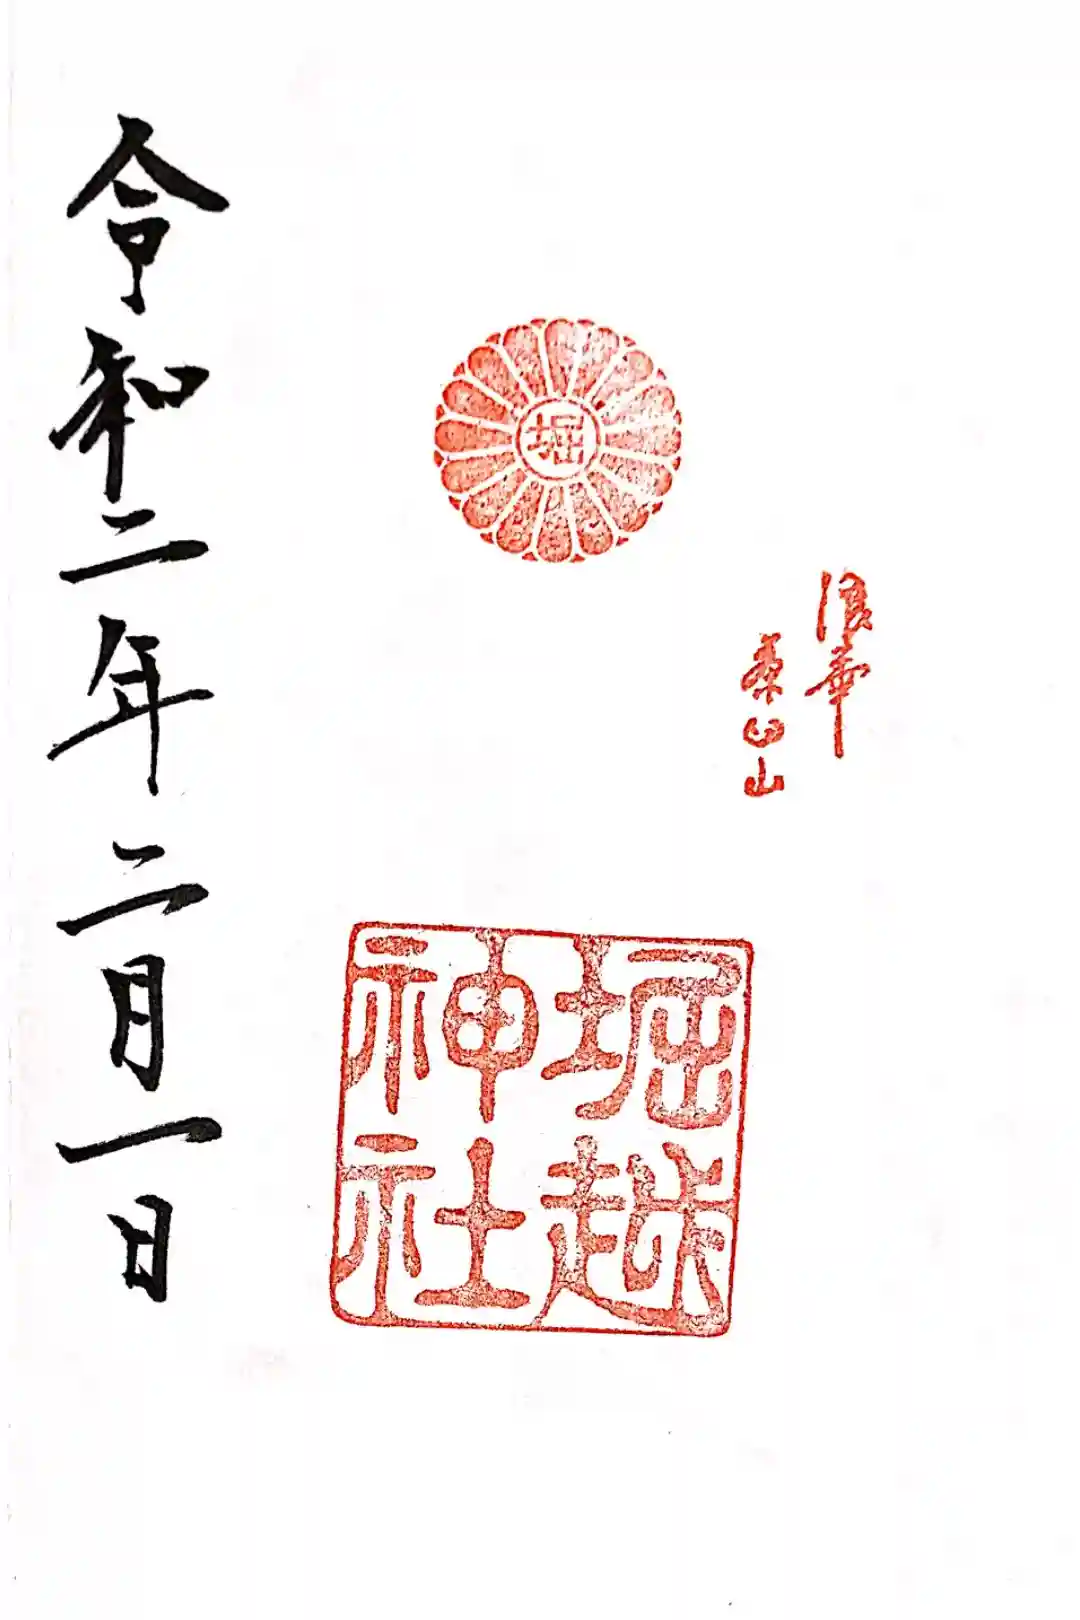 堀
浪華
茶臼山
堀越
神社
令和二年二月一日